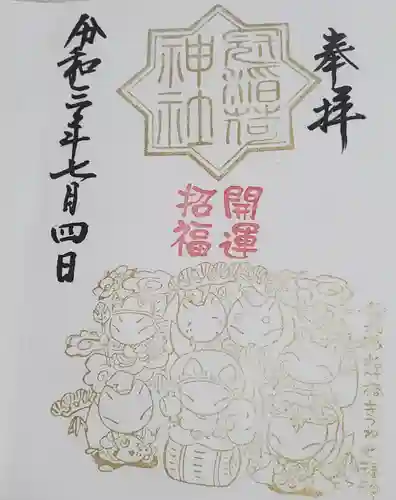 奉拝
冠稲荷
神社
開運
招福
令和三年七月四日